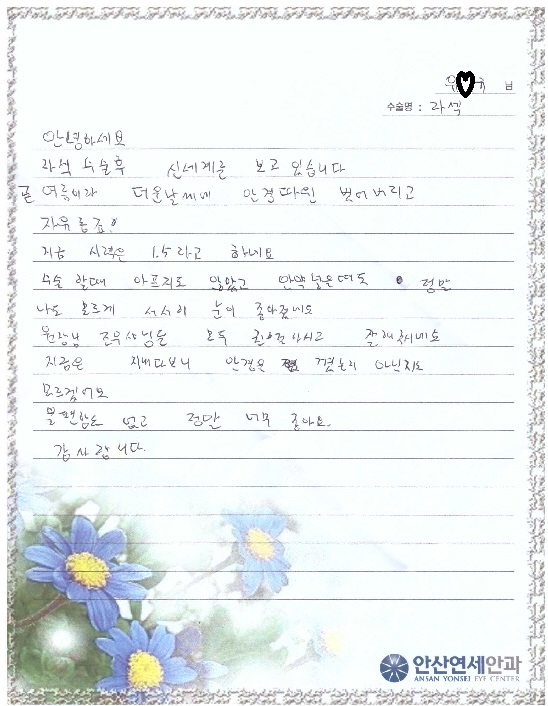 유 규 님
수술명 : 라섹
안녕하세요
라섹 수술후 신세계를 보고 있습니다
곧 여름이라 더운날씨에 안경따윈 벗어버리고
자유롭죠?
지금 시력은 1.5라고 하네요
수술 할때 아프지도 않았고 안약 넣을때도 정말
나도 모르게 서서히 눈이 좋아졌네요
원장님 간호사님들 모두 친절하시고 잘해주시네요
지금은 지내다보니 안경을 꼈는지 아닌지도
모르겠어요
불편함도 없고 정말 너무 좋아요.
감사합니다.
안산연세안과
ANSAN YONSEI EYE CENTER